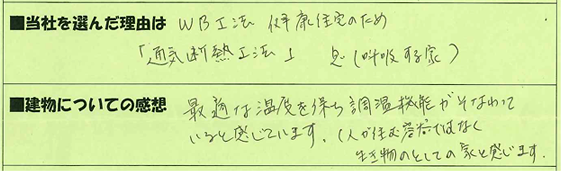 ■当社を選んだ理由は WB工法 健康住宅のため
「通気断熱工法」 息(呼吸する家)
■建物についての感想 最適な温度を保ち調温機能がそなわって
いると感じています。(人が住む容器ではなく
生き物のとしての家と感じます。